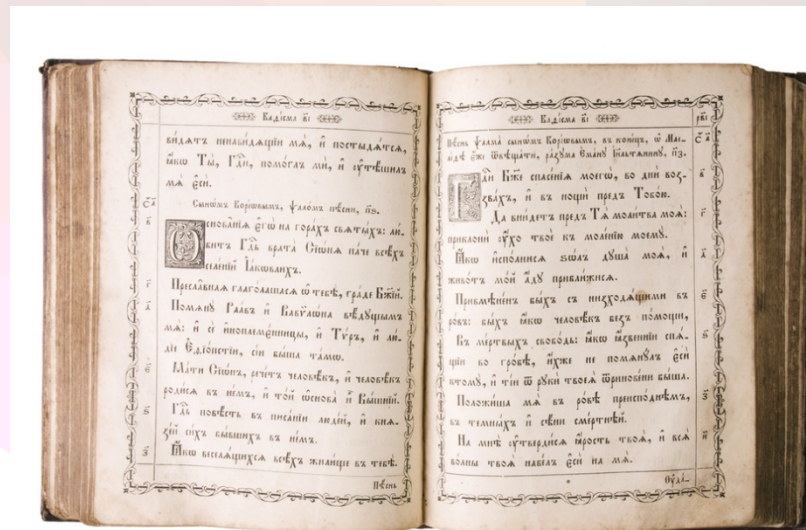 Каѳісма в҃і
ви́дятъ ненави́дящіи мя̀, и҆ постыдя́тся,
ꙗ҆́кѡ Ты̀, Гдⷭ҇и, помо́глъ мѝ, и҆ ᲂу҆тѣ́шилъ
мѧ̀ є҆сѝ.
Сынѡ́мъ Коре́ѡвымъ, ѱало́мъ пѣ́сни, п҃ѕ.
Ѻ҆снова̑нія є҆гѡ̀ на гора́хъ свѧты́хъ: лю́-
битъ Гдⷭ҇ь врата̀ Сіѡ̑ня па́че всѣ́хъ
селе́ній І҆а́кѡвлихъ.
Пресла̑вная глаго́лашася ѡ҆ тебѣ̀, гра́де Бж҃ій.
Помянꙋ̀ Раа́въ и҆ Вавѷлѡ́на вѣ́дꙋщымъ
мя̀: и҆ сѐ и҆ноплеме́нницы, и҆ Тѵ́ръ, и҆ лю́-
діе Е҆ѳіо́пстіи, сі́и бы́ша та́мѡ.
Ма́ти Сіѡ́нъ, рече́тъ человѣ́къ, и҆ человѣ́къ
роди́ся въ не́мъ, и҆ то́й ѡ҆снова̀ и҆ Вы́шній.
Гдⷭ҇ь повѣ́сть въ писа́ніи люде́й, и҆ кня-
зе́й си́хъ бы́вшихъ въ не́мъ.
Ꙗ҆́кѡ веселя́щихся всѣ́хъ жили́ще въ тебѣ̀.
Пѣ́снь
С҃а
в҃
г҃
д҃
є҃
ѕ҃
з҃
Каѳісма в҃і
рв҃і
Пѣ́снь ѱалма̀ сынѡ́мъ Коре́ѡвымъ, въ коне́цъ, ѡ҆ Мае-
ле́ѳѣ є҆́же ѿвѣща́ти, ра́зꙋма Е҆ма́нꙋ І҆и҃льтянинꙋ, п҃з.
Гдⷭ҇и Бж҃е спасе́нія моегѡ̀, во днѝ воз-
зва́хъ, и҆ въ нощѝ предъ Тобо́ю.
Да вни́детъ предъ Тѧ̀ моли́тва моя̀:
приклонѝ ᲂу҆́хо твоѐ къ моле́нію моемꙋ̀.
Ꙗ҆́кѡ и҆спо́лнися ѕѡ́лъ дꙋша̀ моя̀, и҆
живо́тъ мо́й а҆́дꙋ прибли́жися.
Привмѣне́нъ бы́хъ съ низходя́щими въ
ро́въ: бы́хъ ꙗ҆́кѡ человѣ́къ безъ по́мощи,
Въ ме́ртвыхъ свобо́дь: ꙗ҆́кѡ ꙗ҆́звенніи спя́-
щіи во гро́бѣ, и҆́хже не помянꙋ́лъ є҆сѝ
ктомꙋ̀, и҆ ті́и ѿ рꙋкѝ твоеѧ̀ ѿринове́ни бы́ша.
Положи́ша мѧ̀ въ ро́вѣ преиспо́днѣмъ,
въ те́мныхъ и҆ сѣ́ни сме́ртнѣй.
На мнѣ̀ ᲂу҆тверди́ся ꙗ҆́рость твоя̀, и҆ всѧ̑
во́лны твоѧ̑ наве́лъ є҆сѝ на мѧ̀.
Ѹ҆да-
С҃а
в҃
г҃
д҃
є҃
ѕ҃
з҃
и҃